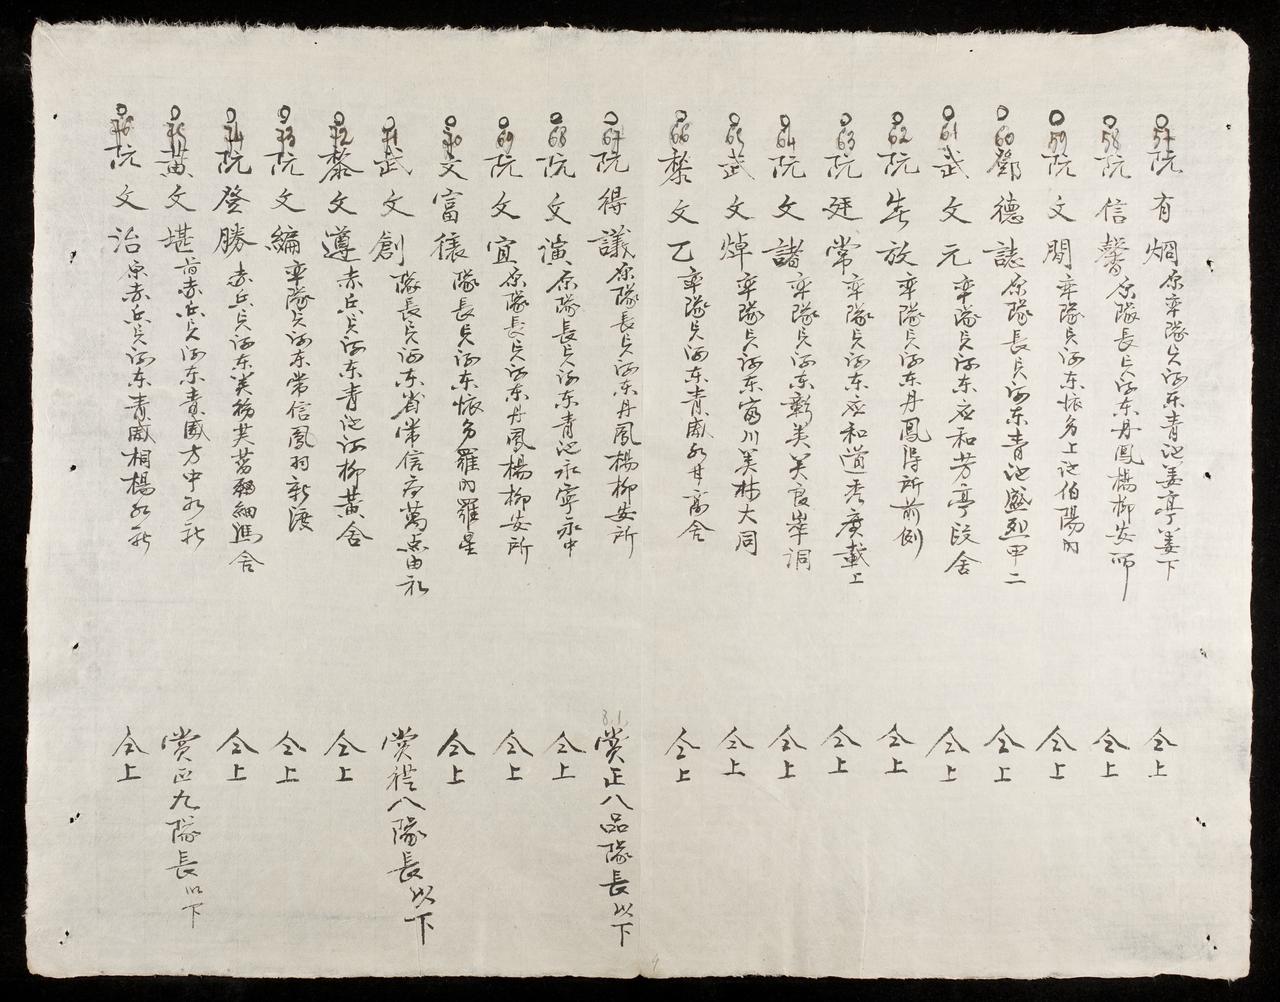 57 阮有烱 原率隊貝河东青池姜亭姜下 仝上
58 阮信馨 原隊長貝河东丹鳳楊柳安所 仝上
59 阮文閒 率隊貝河东懷安上池伯陽内 仝上
60 鄧德誌 原隊長貝河东青池盛烈甲二 仝上
61 武文元 率隊貝河东应和芳亭段舍 仝上
62 阮生放 率隊貝河东丹鳳得所前例 仝上
63 阮廷常 率隊貝河东应和道秀廣載上 仝上
64 阮文諸 率隊貝河东彰美美良峯洞 仝上
65 武文焯 率隊貝河东富川美林大同 仝上
66 黎文乙 率隊貝河东青威永甘高舍 仝上
67 阮得議 原隊長貝河东丹鳳楊柳安所 賞正八品隊長以下
68 阮文演 原隊長貝河东青池永寧永中 仝上
69 阮文宜 原隊長貝河东丹鳳楊柳安所 仝上
70 文富穰 隊長貝河东懷安羅内羅星 仝上
71 武文創 隊長貝河东省常信萬点由礼 賞從八隊長以下
72 黎文遵 赤兵貝河东青池河柳黄舍 仝上
73 阮文編 率隊貝河东常信鳳羽新渡 仝上
74 阮登勝 赤兵貝河东美芙細舍 仝上
75 黄文堪 前赤兵貝河东青威方中 賞正九隊長以下
76 阮文治 原赤兵貝河东青威桐楊 仝上